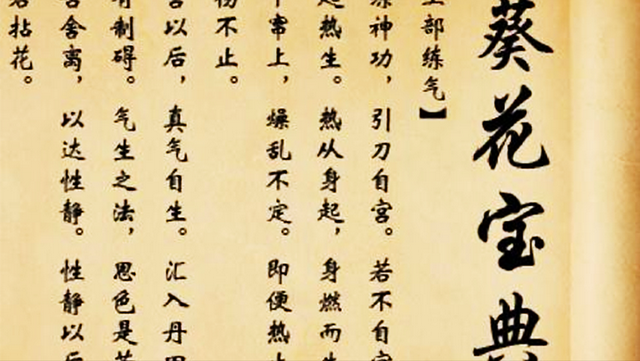 葵花宝典
部练气】
神功，引刀自宫。若不自宫
热生。热从身起，身燃而生
窜上，燥乱不定。即便热
不止。
以后，真气自生。汇入丹田
制碍。气生之法，思色是苦
舍离，以达性静。性静以后
拈花。